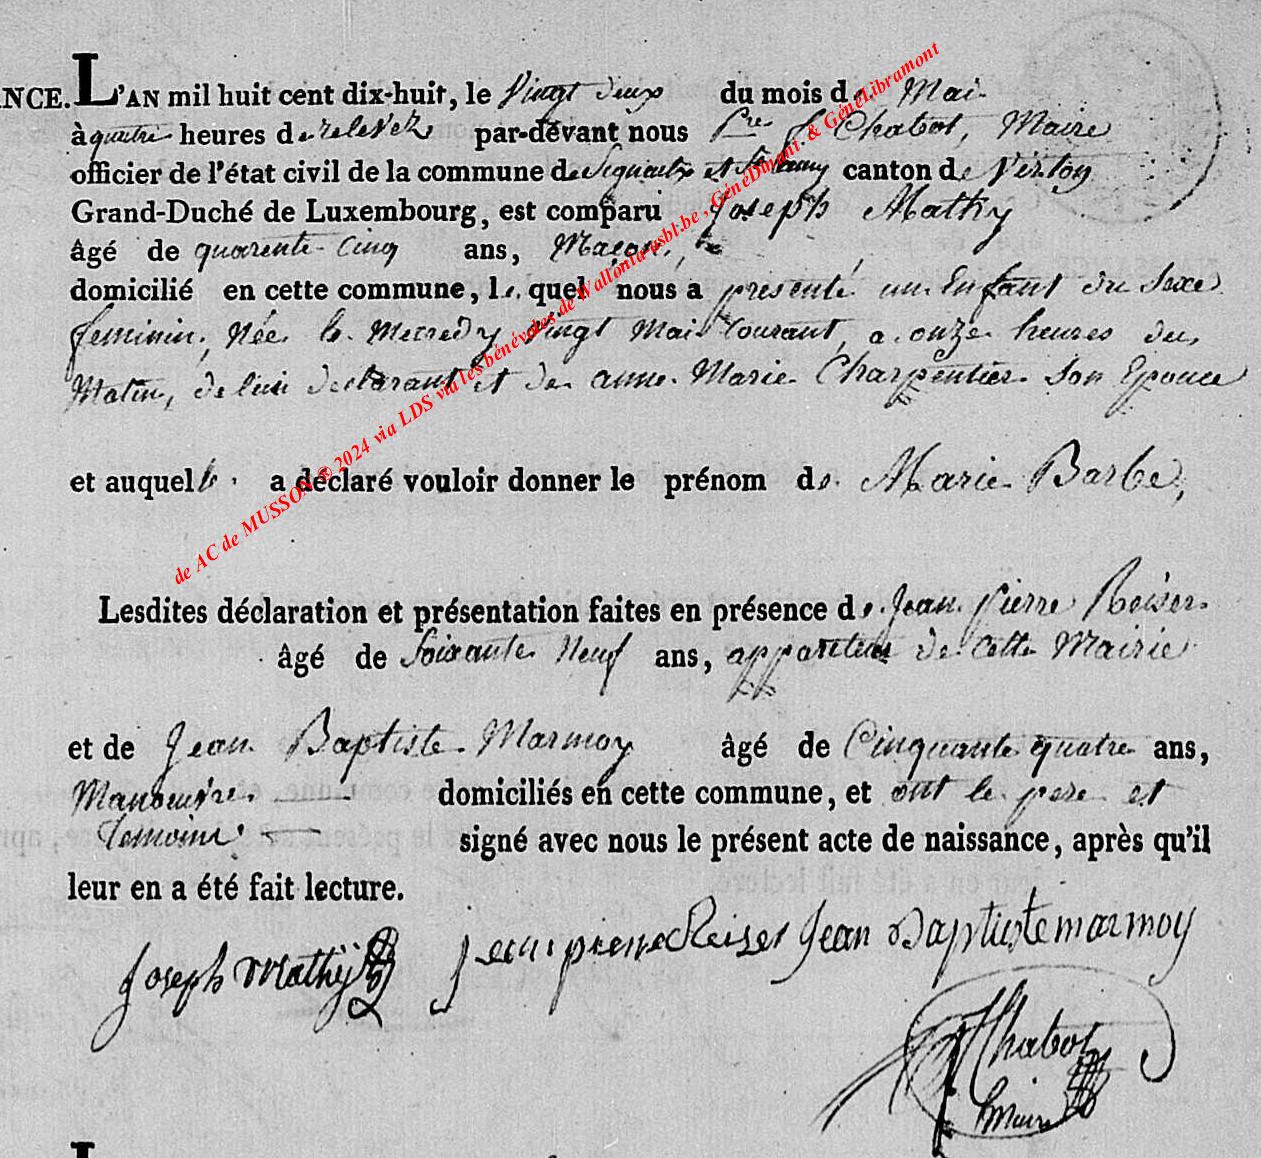 NCE. L'AN mil huit cent dix-huit, le Vingt deux du mois de Mai
à quatre heures de relevez par-devant nous Pre J Chabot, Maire
officier de l'état civil de la commune de Signeulx et canton de Virton
Grand-Duché de Luxembourg, est comparu Joseph Mathy
âgé de quarente-Cinq ans, Maçon,
domicilié en cette commune, le quel nous a présenté un Enfant du Sexe
feminin, Née le Mecredy Vingt Mai Courant, a onze heures du
Matin, de lui declarant et de anne Marie Charpentier Son Epouce
et auquel le a déclaré vouloir donner le prénom de Marie Barbe,
Lesdites déclaration et présentation faites en présence de Jean Pierre Reiser
âgé de Soixante Neuf ans, appariteur de Cette Mairie
et de Jean Baptiste Marmoy âgé de Cinquante quatre ans,
Manoeuvre domiciliés en cette commune, et ont le pere et
temoins signé avec nous le présent acte de naissance, après qu'il
leur en a été fait lecture.
Joseph Mathÿ Jean pierre Reiser Jean Baptiste marmoy
Chabot
Maire
de AC de MUSSON © 2024 via LDS via les bénévoles de Wallonia-asbl.be, GénéDinant & GénéLibramont
L